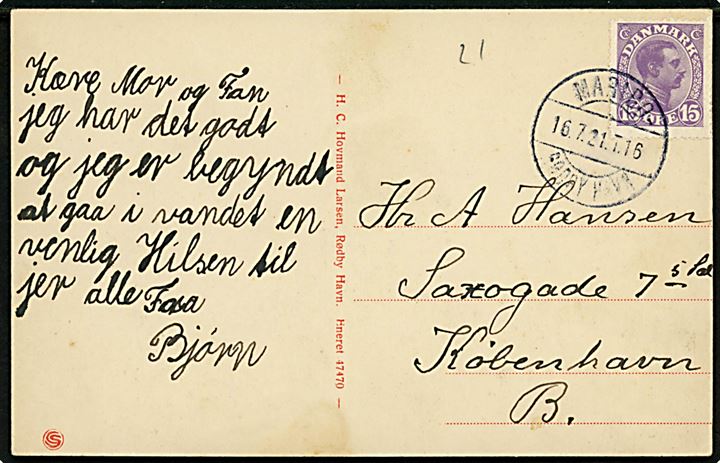 Kære Mor og Far
jeg har det godt
og jeg er begyndt
at gaa i vandet en
venlig Hilsen til
jer alle Fraa
Bjórn
— H. C. Hovmand Larsen, Rødby Havn. Eneret 47470 —
21
DANMARK
15 ØRE 15
MARIBO
16.7.21.T.16
RØDBY HAVN
Hr A Hansen
Saxogade 7 5 Sal
København
B.